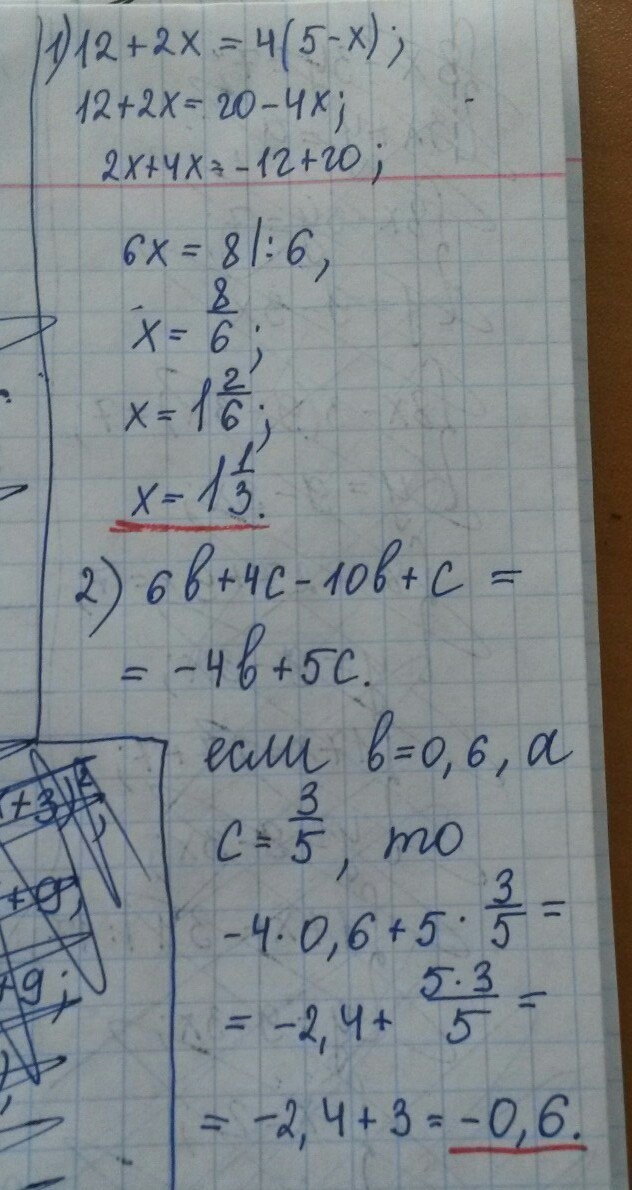 1) 12 + 2x = 4(5-x);
12+2x = 20-4x;
2x+4x = -12+20;
6x = 8 |: 6,
x = 8/6;
x = 1 2/6;
x = 1 1/3.
2) 6в+4с-10в+с =
= -4в+5с.
если в=0,6, а
с = 3/5, то
-4·0,6+5· 3/5 =
= -2,4+ 5·3/5 =
= -2,4+3 = -0,6.
+3)²,
+9,
+9;